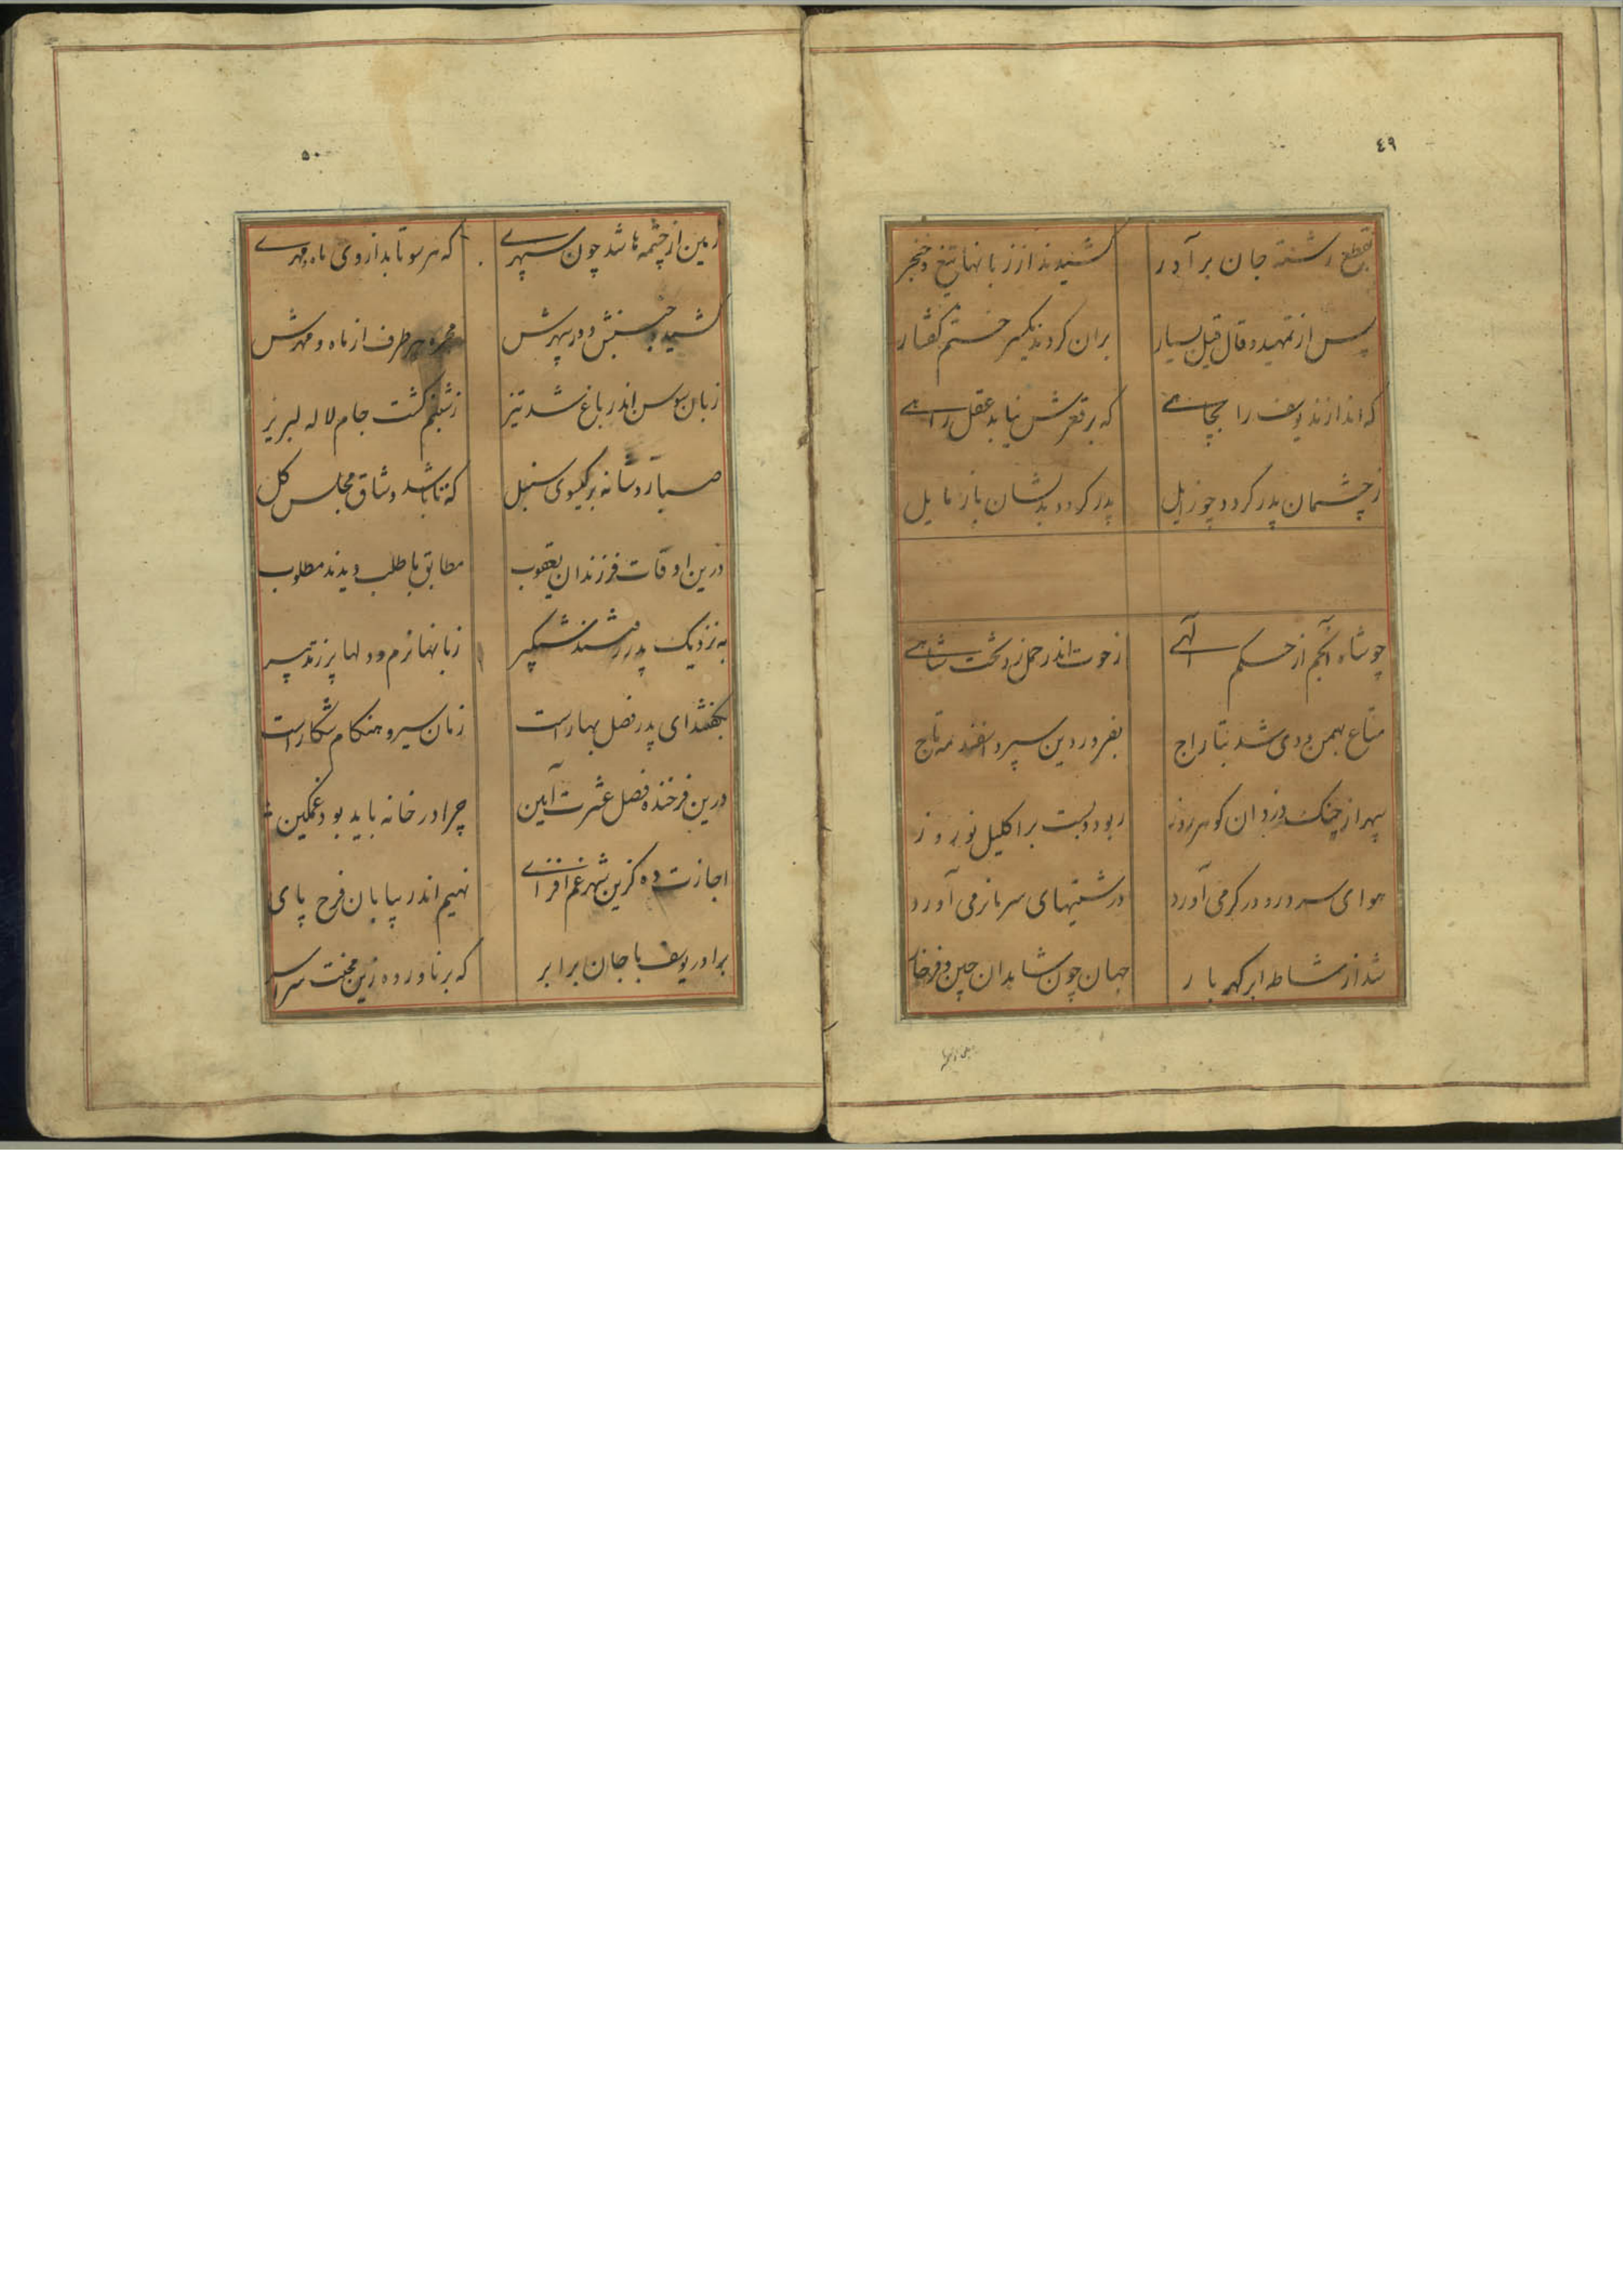 ٤٩
بقطع رشته جان برآدر کشیدند از زبانها تیغ و خنجر
پس از تمهید و قال و قیل بسیار بران کردند یکسر ختم کفتار
که اندازند یوسف را بچاهے که بر قعرش نیابد عقل راهے
ز چشمان پدر کردد چو زایل پدر کردد بدیشان باز مایل
چو شاه انجم از حکم الٓهے ز حوت اندر حمل زد تخت شاهے
متاع بهمن و دی شد بتاراج بفروردین سپرد اسفندمه تاج
سپهر از چنک دزدان کوهر روز ربود و بست بر اکلیل نوروز
هوای سرد رو در کرمی آورد درشتیهای سرما نرمی آورد
شد از مشاطه ابر کهربار جهان چون شاهدان چین و فرخار
٥٠
زمین از چشمه ها شد چون سپهرے که هر سو تابد از وی ماه و مهرے
کشید و جنبش دور سپهرش مجره هر طرف از ماه و مهرش
زبان سوسن اندر باغ شد تیز ز شبنم کشت جام لاله لبریز
صبا زد شانه بر کیسوی سنبل که تا باشد وشاق مجلس کل
درین اوقات فرزندان یعقوب مطابق با طلب دیدند مطلوب
به نزدیک پدر رفتند شبکیر زبانها نرم و دلها پر ز تدبیر
بکفتند ای پدر فصل بهار است زمان سیر و هنکام شکار است
درین فرخنده فصل عشرت آیین چرا در خانه باید بود غمکین
اجازت ده کزین شهر غم افزاے نهیم اندر بیابان فرح پای
برادر یوسف با جان برابر که برناورده زین محنت سرا سر